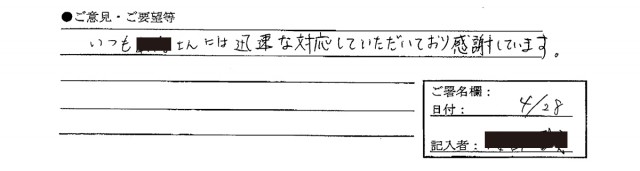 ●ご意見・ご要望等
いつも さんには迅速な対応していただいており感謝しています。
ご署名欄:
日付: 4/28
記入者: